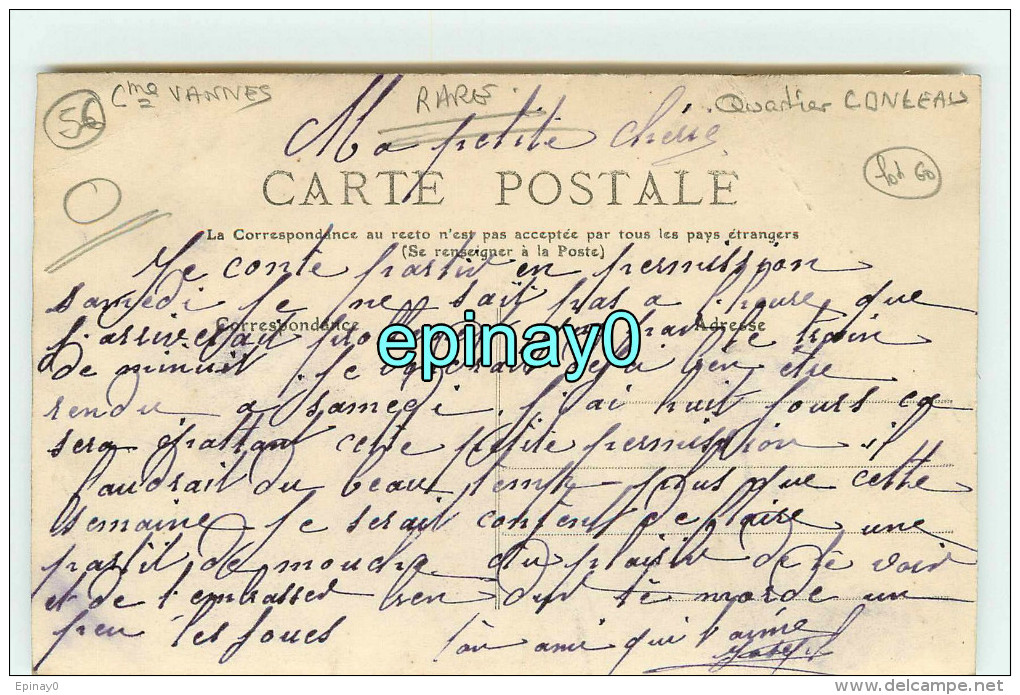 56
Cne VANNES
RARE
Quartier CONLEAU
Ma petite chérie
CARTE POSTALE
La Correspondance au recto n'est pas acceptée par tous les pays étrangers
(Se renseigner à la Poste)
Je conte partir en permission
samedi je ne sait pas a l'heure que
Correspondance
Adresse
j'arriverait par le train
epinay0
de minuit. Je déjà ben être
rendu a samedi. j'ai huit jours ça
sera épattant cette petite permission il
faudrait du beau temps plus que cette
semaine Je serait content de faire une
partit de moudre du plaisir de te voir
et de t'embrasser ben dur te morde un
peu les joues
ton ami qui t'aime
Joseph
Epinay0
DELCAMPE.NET